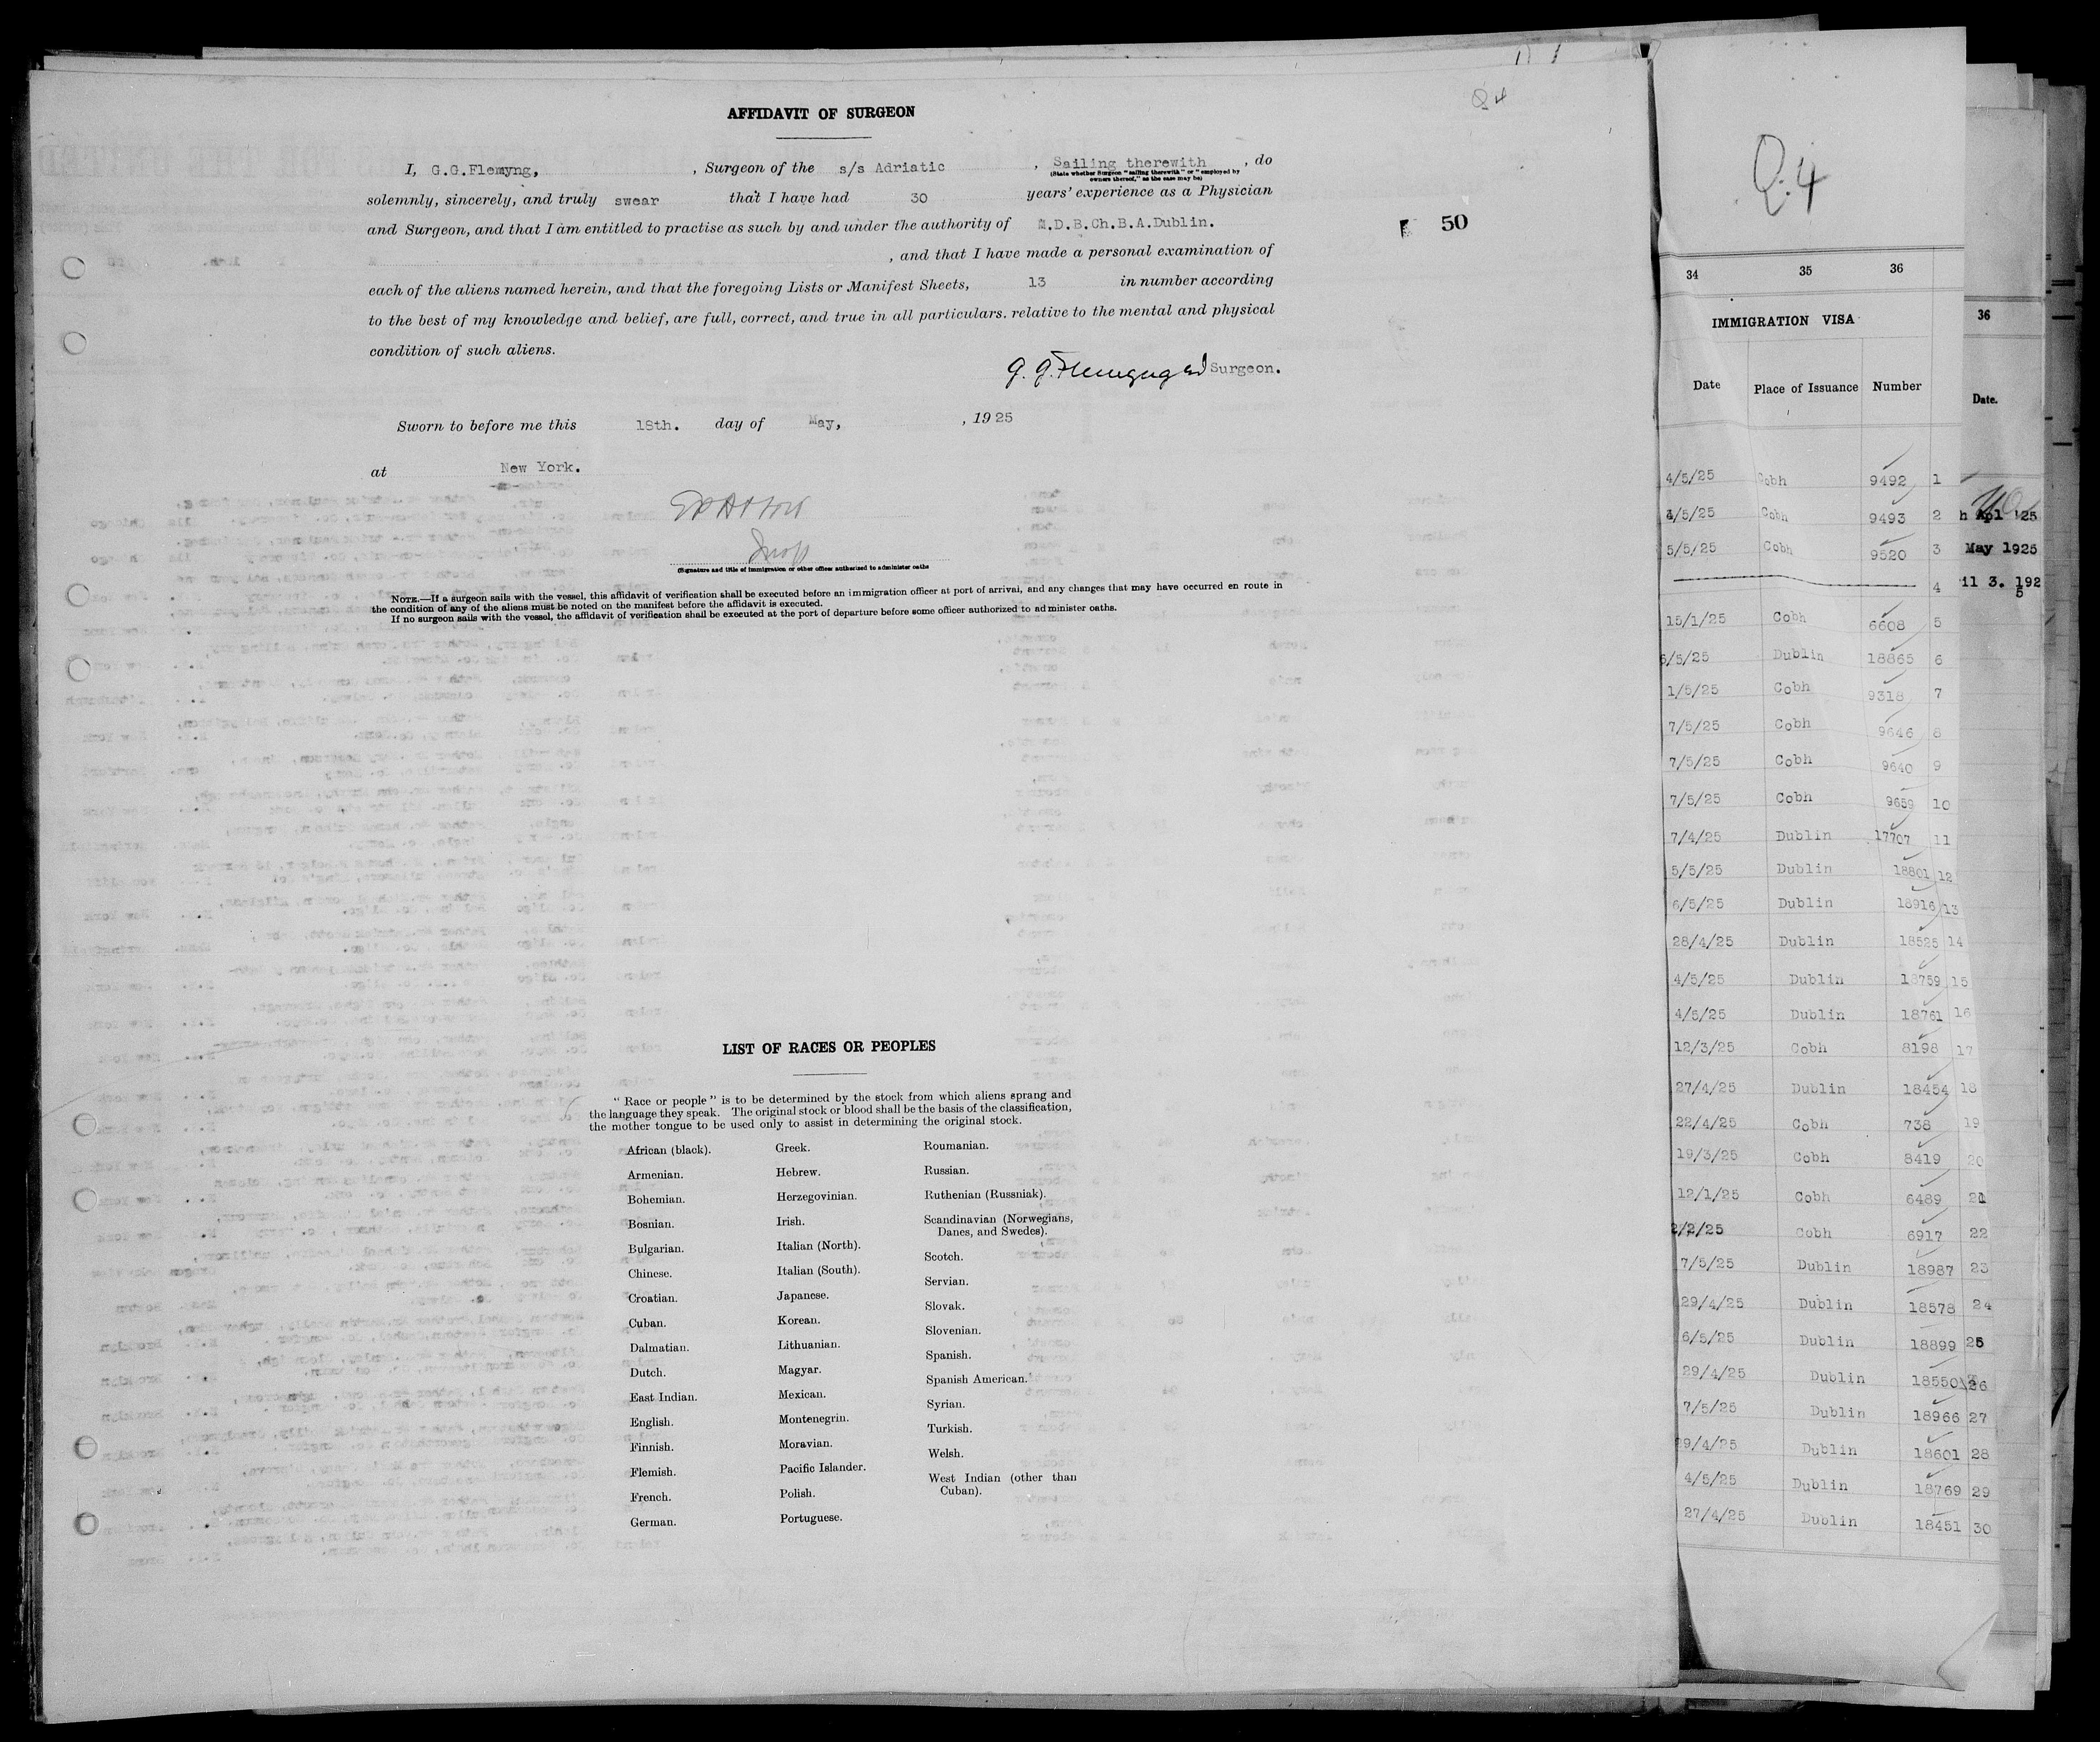 Q4
AFFIDAVIT OF SURGEON
I, G.G.Flemyng, , Surgeon of the s/s Adriatic , Sailing therewith , do
(State whether Surgeon "sailing therewith" or "employed by
owners thereof," as the case may be)
solemnly, sincerely, and truly swear that I have had 30 years' experience as a Physician
and Surgeon, and that I am entitled to practise as such by and under the authority of M.D.B.Ch.B.A.Dublin.
, and that I have made a personal examination of
each of the aliens named herein, and that the foregoing Lists or Manifest Sheets, 13 in number according
to the best of my knowledge and belief, are full, correct, and true in all particulars. relative to the mental and physical
condition of such aliens.
G. G. Flemyng Surgeon.
Sworn to before me this 18th. day of May, , 1925
at New York.
(Signature and title of immigration or other officer authorized to administer oaths
NOTE.—If a surgeon sails with the vessel, this affidavit of verification shall be executed before an immigration officer at port of arrival, and any changes that may have occurred en route in
the condition of any of the aliens must be noted on the manifest before the affidavit is executed.
If no surgeon sails with the vessel, the affidavit of verification shall be executed at the port of departure before some officer authorized to administer oaths.
50
LIST OF RACES OR PEOPLES
"Race or people" is to be determined by the stock from which aliens sprang and
the language they speak. The original stock or blood shall be the basis of the classification,
the mother tongue to be used only to assist in determining the original stock.
African (black).
Armenian.
Bohemian.
Bosnian.
Bulgarian.
Chinese.
Croatian.
Cuban.
Dalmatian.
Dutch.
East Indian.
English.
Finnish.
Flemish.
French.
German.
Greek.
Hebrew.
Herzegovinian.
Irish.
Italian (North).
Italian (South).
Japanese.
Korean.
Lithuanian.
Magyar.
Mexican.
Montenegrin.
Moravian.
Pacific Islander.
Polish.
Portuguese.
Roumanian.
Russian.
Ruthenian (Russniak).
Scandinavian (Norwegians,
Danes, and Swedes).
Scotch.
Servian.
Slovak.
Slovenian.
Spanish.
Spanish American.
Syrian.
Turkish.
Welsh.
West Indian (other than
Cuban).
Q.4
34 35 36
IMMIGRATION VISA
Date Place of Issuance Number
4/5/25 Cobh 9492 1
4/5/25 Cobh 9493 2
5/5/25 Cobh 9520 3
4
15/1/25 Cobh 6608 5
6/5/25 Dublin 18865 6
1/5/25 Cobh 9318 7
7/5/25 Cobh 9646 8
7/5/25 Cobh 9640 9
7/5/25 Cobh 9659 10
7/4/25 Dublin 17707 11
5/5/25 Dublin 18801 12
6/5/25 Dublin 18916 13
28/4/25 Dublin 18525 14
4/5/25 Dublin 18759 15
4/5/25 Dublin 18761 16
12/3/25 Cobh 8198 17
27/4/25 Dublin 18454 18
22/4/25 Cobh 738 19
19/3/25 Cobh 8419 20
12/1/25 Cobh 6489 21
2/2/25 Cobh 6917 22
7/5/25 Dublin 18987 23
29/4/25 Dublin 18578 24
6/5/25 Dublin 18899 25
29/4/25 Dublin 18550 26
7/5/25 Dublin 18966 27
29/4/25 Dublin 18601 28
4/5/25 Dublin 18769 29
27/4/25 Dublin 18451 30
36
Date.
h Apl '25
May 1925
il 3. 192
5